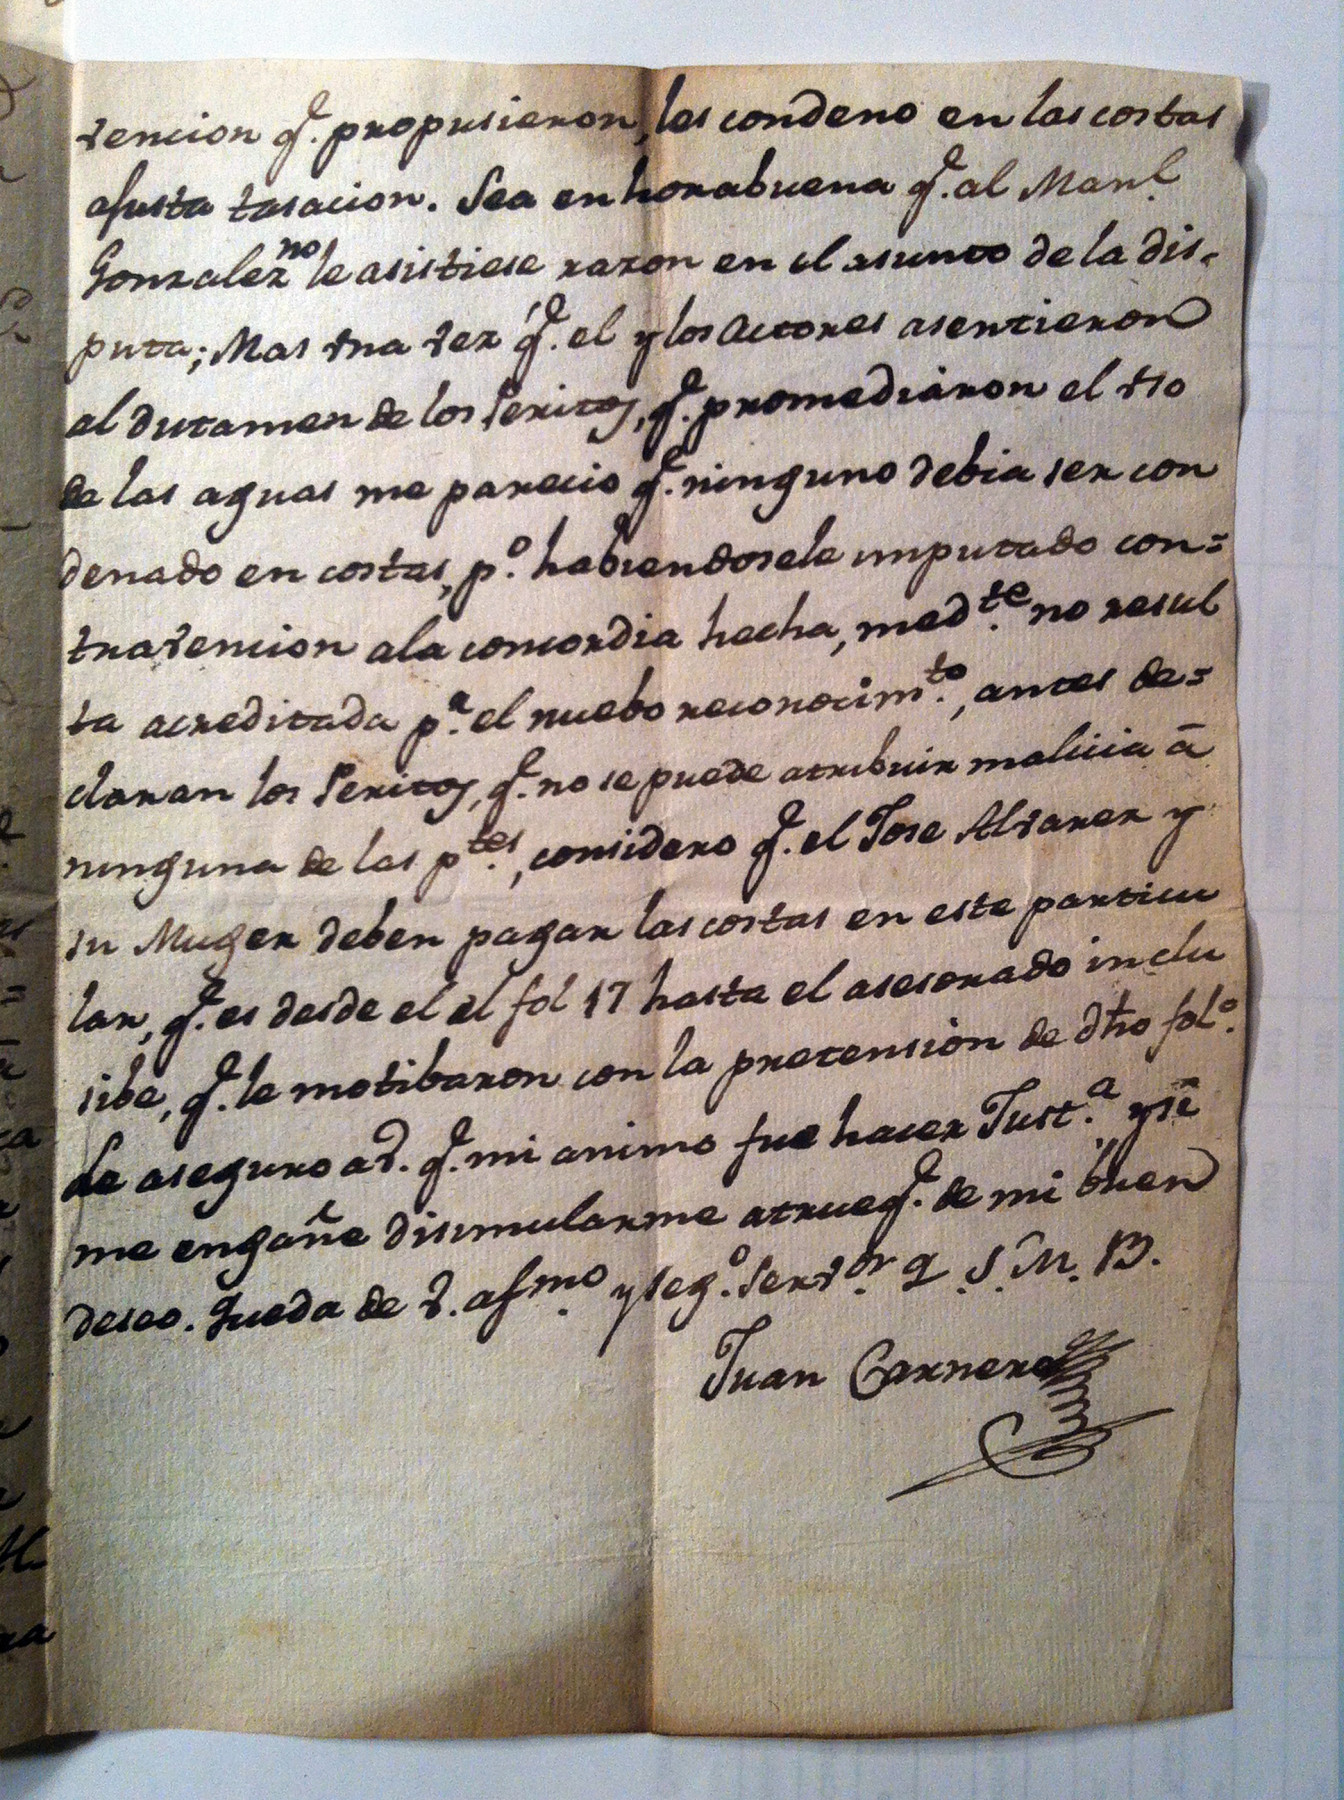 vencion q.e propusieron, les condeno en las costas
a justa tasacion. Sea en horabuena q.e al Man.l
Gonzalez no le asistiese razon en el asunto de la dis-
puta; Mas vna vez q.e el y los Actores asentieron
al dictamen de los Peritos, q.e promediaron el vso
de las aguas me parecio q.e ninguno debia ser con
denado en costas, p.o habiendosele imputado con=
travencion a la concordia hecha, med.te no resul
ta acreditada p.r el nuebo reconocim.to, antes de=
claran los Peritos, q.e no se puede atribuir malicia à
ninguna de las p.tes, considero q.e el Jose Alvarez y
su Muger deben pagar las costas en este particu
lar, q.e es desde el el fol 17 hasta el asesorado inclu
sibe, q.e le motibaron con la pretension de dho fol.o
Le aseguro a V. q.e mi animo fue hacer Just.a y si
me engañe disimularme a trueq.e de mi buen
deseo. Queda de V. af.mo y seg.o Serv.or q. S. M. B.
Juan Carnero